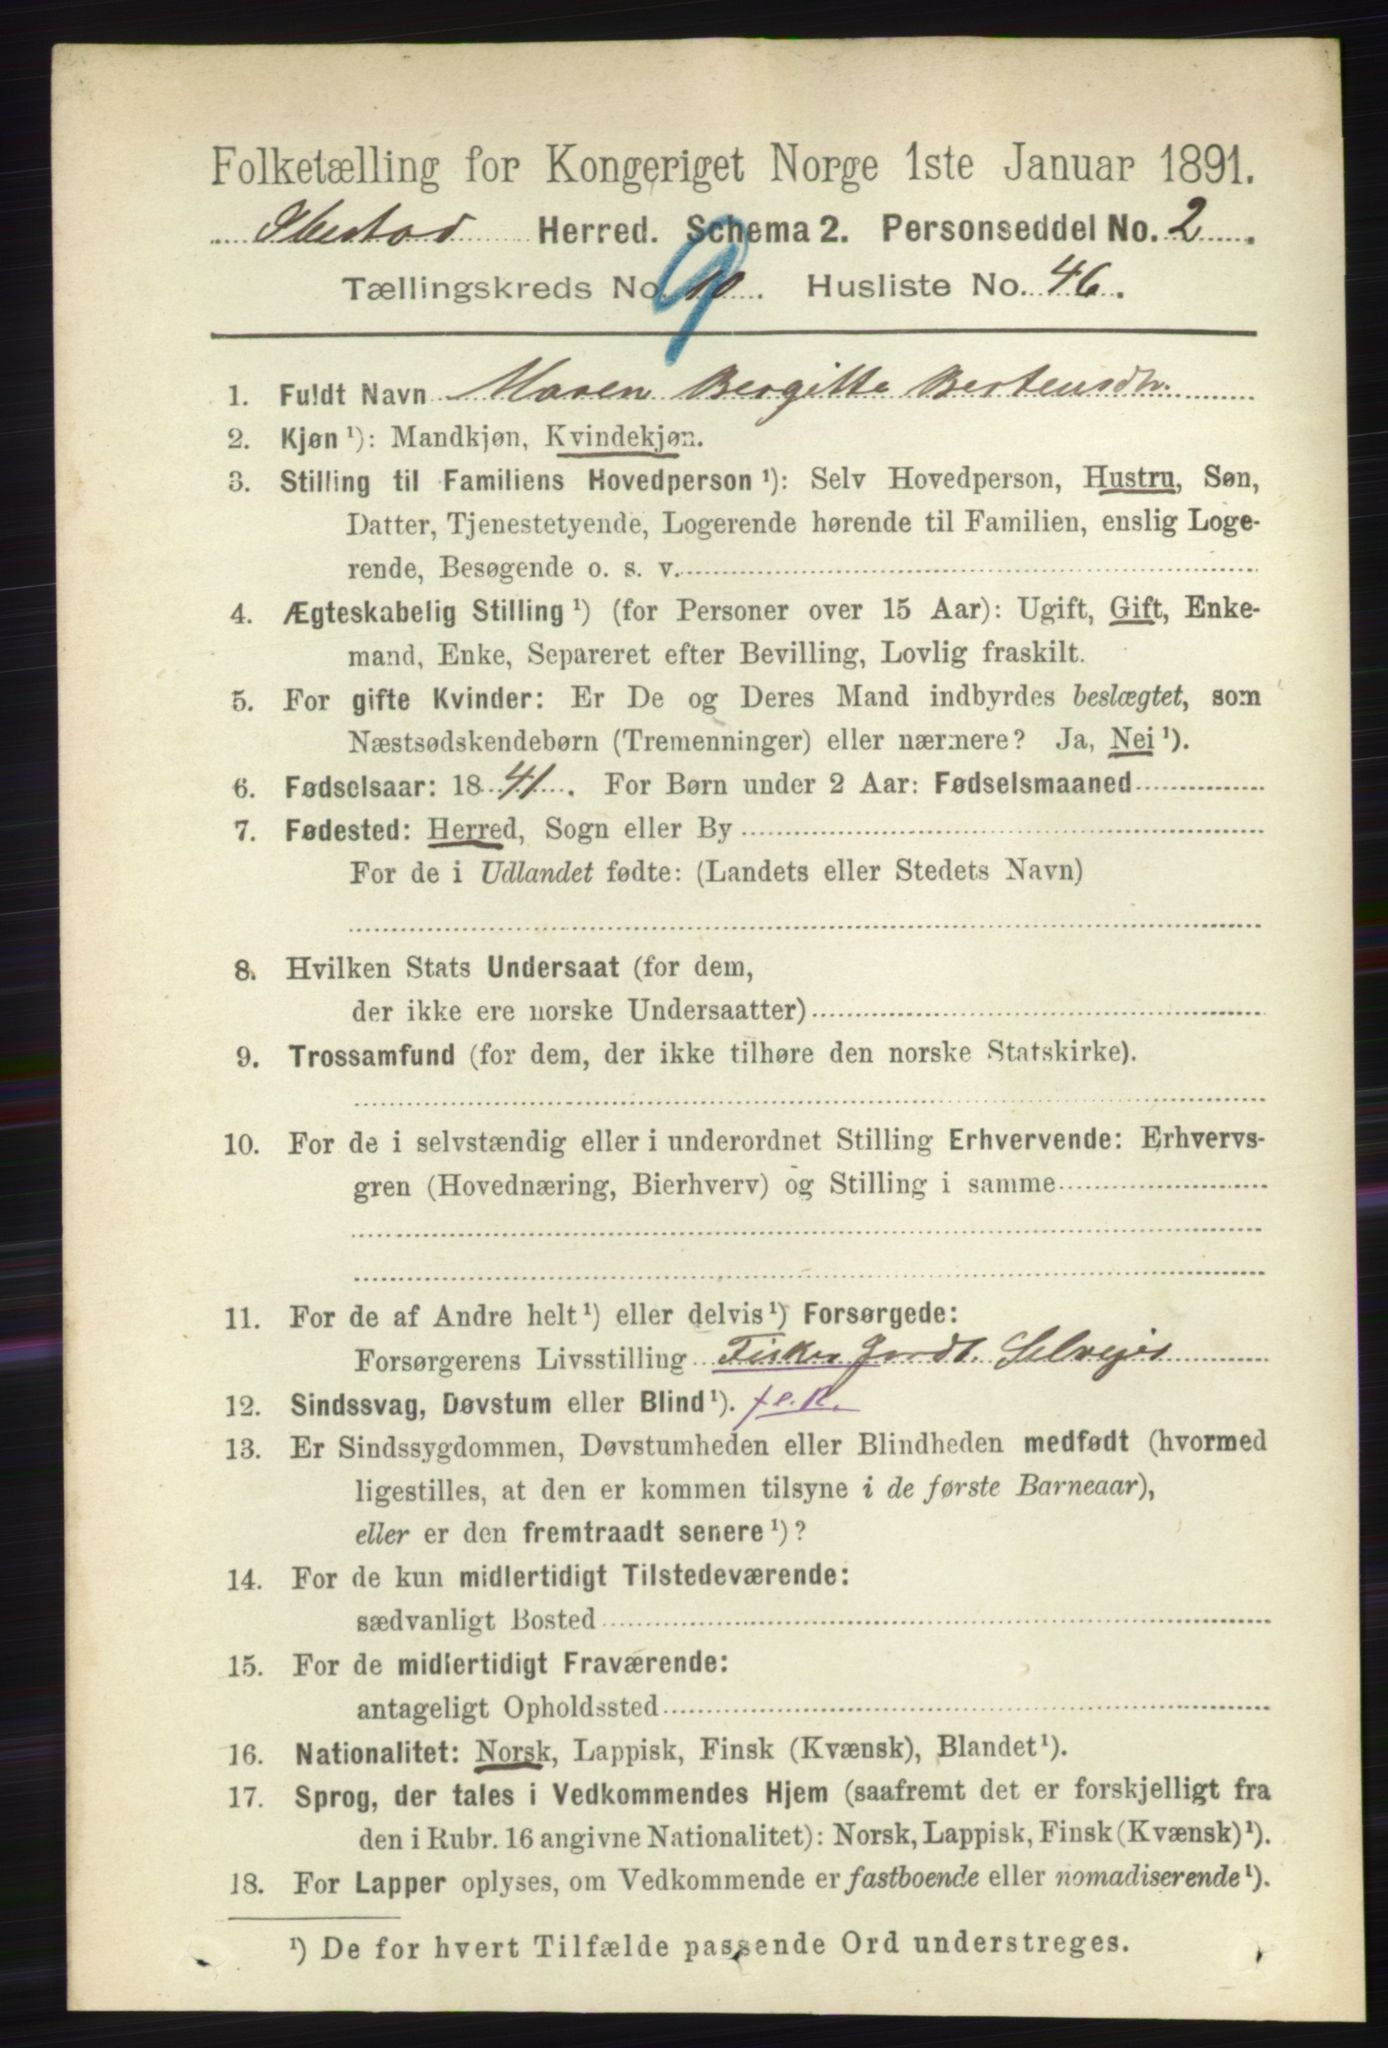 Folketælling for Kongeriget Norge 1ste Januar 1891.
Ibestad Herred. Schema 2. Personseddel No. 2.
Tællingskreds No. 10. Husliste No. 46.
9
1. Fuldt Navn Maren Bergitte Bertensdtr.
2. Kjøn ¹): Mandkjøn, Kvindekjøn.
3. Stilling til Familiens Hovedperson ¹): Selv Hovedperson, Hustru, Søn,
Datter, Tjenestetyende, Logerende hørende til Familien, enslig Loge-
rende, Besøgende o. s. v.
4. Ægteskabelig Stilling ¹) (for Personer over 15 Aar): Ugift, Gift, Enke-
mand, Enke, Separeret efter Bevilling, Lovlig fraskilt.
5. For gifte Kvinder: Er De og Deres Mand indbyrdes beslægtet, som
Næstsødskendebørn (Tremenninger) eller nærmere? Ja, Nei ¹).
6. Fødselsaar: 1841. For Børn under 2 Aar: Fødselsmaaned
7. Fødested: Herred, Sogn eller By
For de i Udlandet fødte: (Landets eller Stedets Navn)
8. Hvilken Stats Undersaat (for dem,
der ikke ere norske Undersaatter)
9. Trossamfund (for dem, der ikke tilhøre den norske Statskirke).
10. For de i selvstændig eller i underordnet Stilling Erhvervende: Erhvervs-
gren (Hovednæring, Bierhverv) og Stilling i samme
11. For de af Andre helt ¹) eller delvis ¹) Forsørgede:
Forsørgerens Livsstilling Fisker Jordb. Selveier
12. Sindssvag, Døvstum eller Blind ¹).
13. Er Sindssygdommen, Døvstumheden eller Blindheden medfødt (hvormed
ligestilles, at den er kommen tilsyne i de første Barneaar),
eller er den fremtraadt senere ¹)?
14. For de kun midlertidigt Tilstedeværende:
sædvanligt Bosted
15. For de midlertidigt Fraværende:
antageligt Opholdssted
16. Nationalitet: Norsk, Lappisk, Finsk (Kvænsk), Blandet ¹).
17. Sprog, der tales i Vedkommendes Hjem (saafremt det er forskjelligt fra
den i Rubr. 16 angivne Nationalitet): Norsk, Lappisk, Finsk (Kvænsk) ¹).
18. For Lapper oplyses, om Vedkommende er fastboende eller nomadiserende ¹).
¹) De for hvert Tilfælde passende Ord understreges.